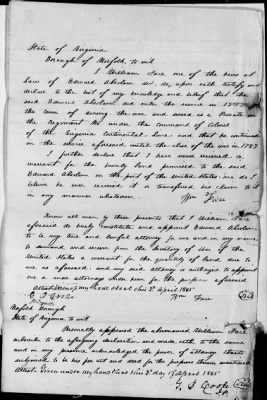 State of Virginia
Borough of Norfolk to wit
I William Face one of the heirs at
Law of Edward Abselom dec. do, upon oath testify and
declare to the best of my knowledge and belief that the
said Edward Abselom did enter the service in 1777
the town of during the war and served as a Private in
the Regiment No under the command of Colonel
of the Virginia Continental Line: and that he continued
in the service aforesaid until the close of the war in 1783
I further declare that I have never received a
warrant for the bounty land promised to the said
Edward Abselom on the part of the United States: nor do I
believe he ever received it or transferred his claim to it
in any manner whatsoever.
Wm Face
Know all men by these presents that I William Face
aforesaid do hereby constitute and appoint Edward
to be my true and lawful attorney for me and in my name
to demand and receive from the Secretary of War of the
United States a warrant for the quantity of land due
to me as aforesaid; and my said attorney is authorized to appoint
one or more attornies under him for the purpose aforesaid
Attest Witness my hand & seal this 3d April 1805
G. S. Cooke
Wm Face
Seal
Norfolk Borough
State of Virginia to wit
Personally appeared the abovenamed William Face
subscribed to the aforegoing declaration and made oath to the same
and in my presence acknowledged the power of attorney thereto
subjoined to be his act and deed for the purpose therein mentioned
Attest Given under my hand & seal this 3d day of April 1805
G. S. Cooke